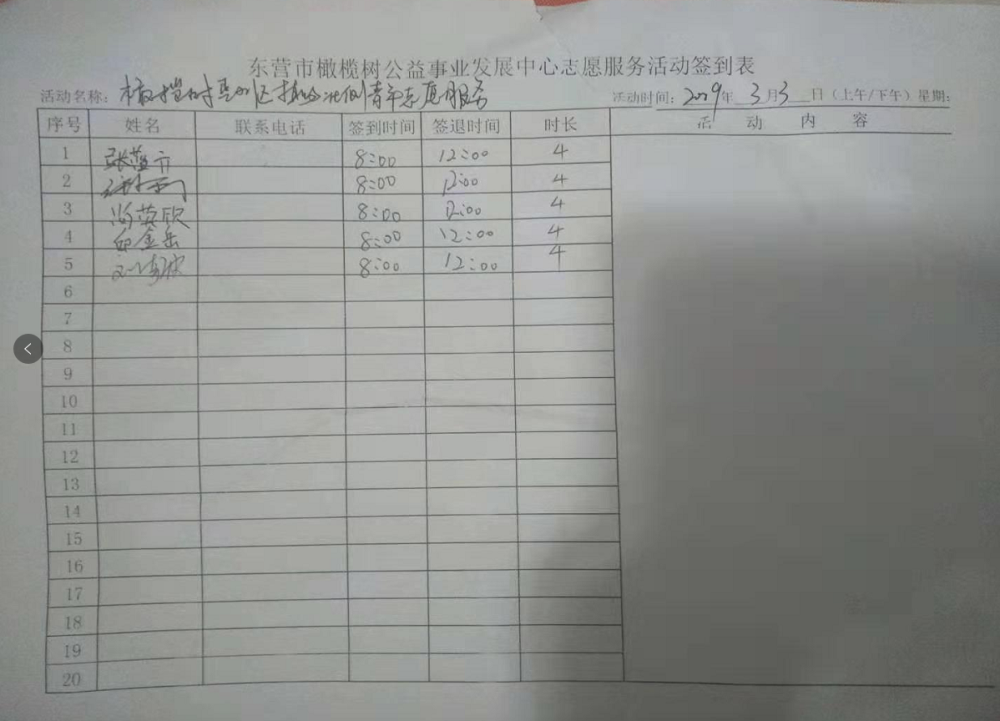 东营市橄榄树公益事业发展中心志愿服务活动签到表
活动名称: 橄榄树垦利区 青年志愿服务 活动时间: 2019年 3月3日(上午/下午)星期:
序号 姓名 联系电话 签到时间 签退时间 时长 活动内容
1 8:00 12:00 4
2 8:00 12:00 4
3 尚英欣 8:00 12:00 4
4 金岳 8:00 12:00 4
5 8:00 12:00 4
6
7
8
9
10
11
12
13
14
15
16
17
18
19
20